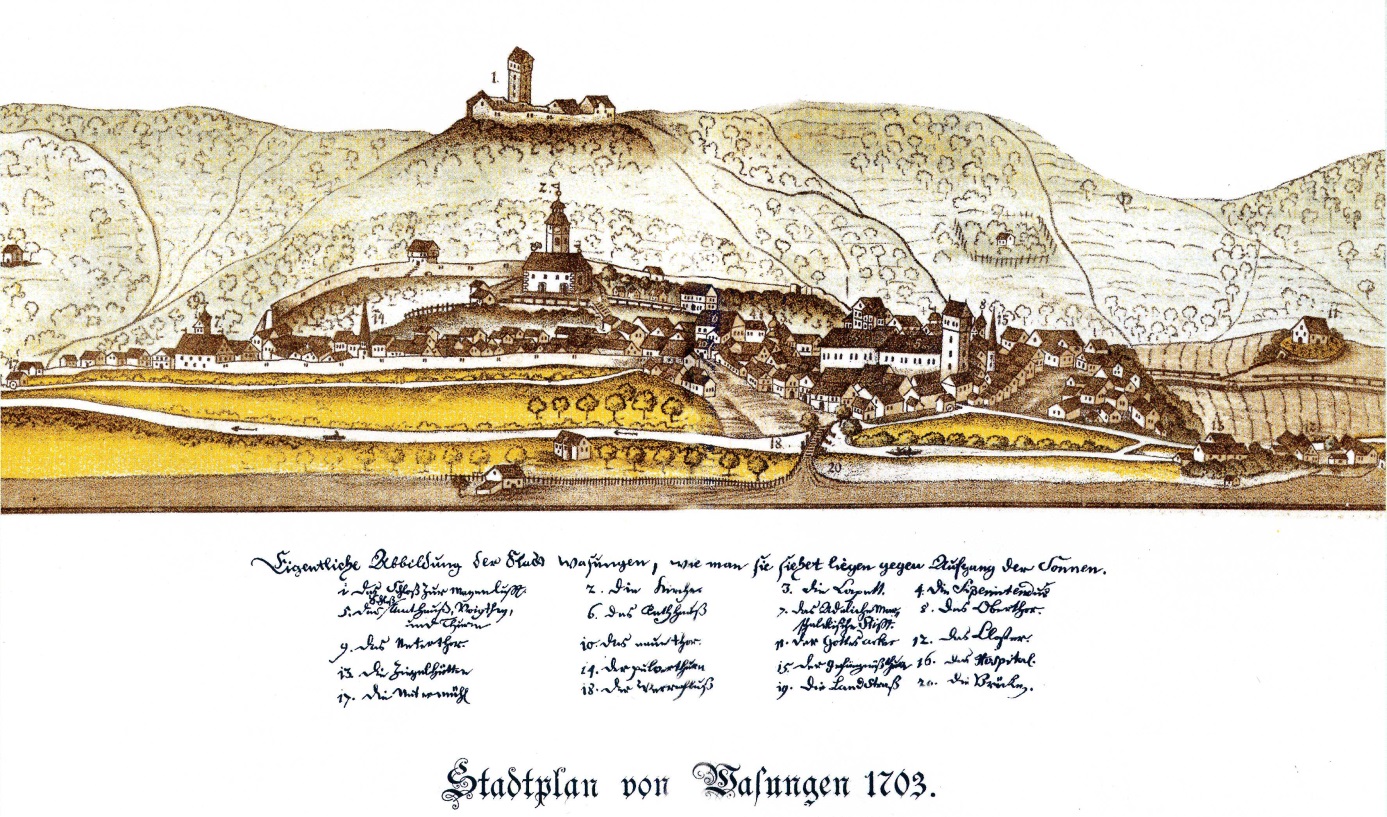 1.
2.
14
8
15
11
18
13
20
Eigentliche Abbildung der Stadt Wasungen, wie man sie siehet liegen gegen Aufgang der Sonnen.
1. Das Schloß zur 2. Die Kirche 3. Die 4. Die
5. Das Amthauß, Voigthey, 6. Das Rathhauß 7. Das Adeliche 8. Das Oberthor.
und Thurm Stifft.
9. Das Unterthor. 10. Das neue Thor. 11. Der Gottesacker 12. Das Closter.
13. Die Ziegelhütten 14. Der Pulverthurm 15. Der Gefängnißthurm 16. Das Hospital.
17. Die Untermühl 18. Der Werrafluß 19. Die Landstraß 20. Die Brücke.
Stadtplan von Wasungen 1703.